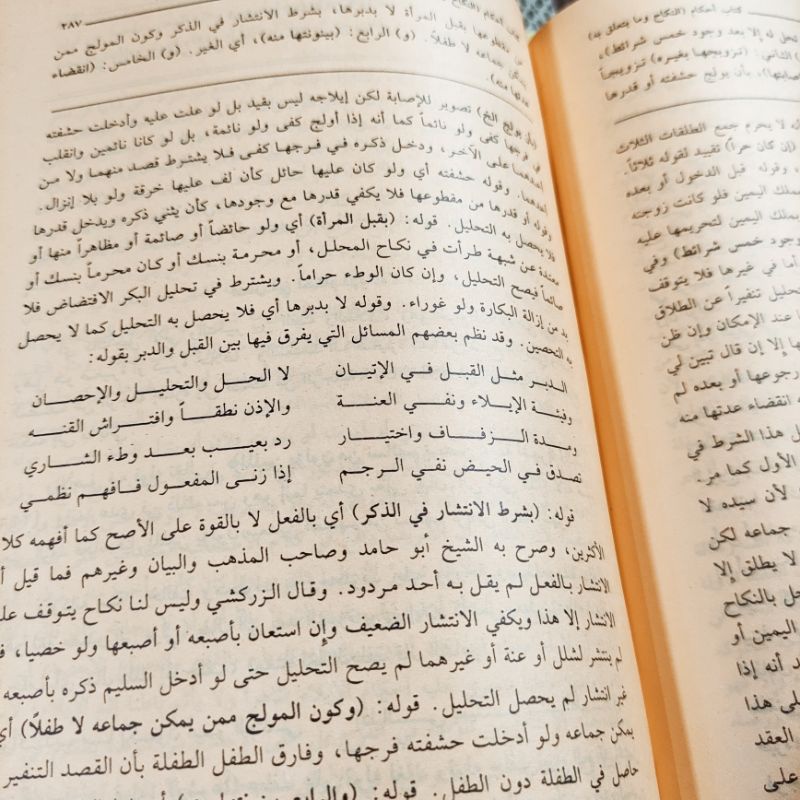 كتاب أحكام (النكاح وما يتعلق به)
تحل له إلا بعد وجود خمس شرائط)،
الثاني: (تزويجها بغيره) تزويجاً
بأن يولج حشفته أو قدرها
له لا يحرم جمع الطلقات الثلاث
(إن كان حراً) تقييد لقوله ثلاثاً.
وقوله قبل الدخول أو بعده
بملك اليمين فلو كانت زوجته
بملك اليمين لتحريمها عليه
وجود خمس شرائط) وفي
أما في غيرها فلا يتوقف
التحليل تنفيراً عن الطلاق
عند الإمكان وإن ظن
إلا إن قال تبين لي
رجوعها أو بعده لم
انقضاء عدتها منه
هذا الشرط في
الأول كما مر.
لأن سيده لا
جماعه لكن
لا يطلق إلا
بالنكاح
اليمين أو
أنه إذا
على هذا
العقد
على
٢٨٧
من مقطوعها بقبل المرأة لا بدبرها، بشرط الانتشار في الذكر وكون المولج ممن
يمكن جماعه لا طفلاً. (و) الرابع: (بينونتها منه)، أي الغير. (و) الخامس: (انقضاء
عدتها منه)
(بأن يولج الخ) تصوير للإصابة لكن إيلاجه ليس بقيد بل لو علت عليه وأدخلت حشفته
في فرجها كفى ولو نائماً كما أنه إذا أولج كفى ولو نائمة، بل لو كانا نائمين وانقلب
أحدهما على الآخر، ودخل ذكره في فرجها كفى فلا يشترط قصد منهما ولا من
أحدهما. وقوله حشفته أي ولو كان عليها حائل كأن لف عليها خرقة ولو بلا إنزال.
وقوله أو قدرها من مقطوعها فلا يكفي قدرها مع وجودها، كأن يثني ذكره ويدخل قدرها
فلا يحصل به التحليل. قوله: (بقبل المرأة) أي ولو حائضاً أو صائمة أو مظاهراً منها أو
معتدة عن شبهة طرأت في نكاح المحلل، أو محرمة بنسك أو كان محرماً بنسك أو
صائماً فيصح التحليل، وإن كان الوطء حراماً. ويشترط في تحليل البكر الافتضاض فلا
بد من إزالة البكارة ولو غوراء. وقوله لا بدبرها أي فلا يحصل به التحليل كما لا يحصل
به التحصين. وقد نظم بعضهم المسائل التي يفرق فيها بين القبل والدبر بقوله:
الدبر مثل القبل في الإتيان لا الحل والتحليل والإحصان
وفيئة الإيلاء ونفي العنة والإذن نطقاً وافتراش القنه
ومدة الزفاف واختيار رد بعيب بعد وطء الشاري
تصدق في الحيض نفي الرجم إذا زنى المفعول فافهم نظمي
قوله: (بشرط الانتشار في الذكر) أي بالفعل لا بالقوة على الأصح كما أفهمه
الأكثرين، وصرح به الشيخ أبو حامد وصاحب المذهب والبيان وغيرهم فما قيل
الانتشار بالفعل لم يقل به أحد مردود. وقال الزركشي وليس لنا نكاح يتوقف
الانتشار إلا هذا ويكفي الانتشار الضعيف وإن استعان بأصبعه أو أصبعها ولو خصيا،
لم ينتشر لشلل أو عنة أو غيرهما لم يصح التحليل حتى لو أدخل السليم ذكره بأصبعه
غير انتشار لم يحصل التحليل. قوله: (وكون المولج ممن يمكن جماعه لا طفلاً)
يمكن جماعه ولو أدخلت حشفته فرجها، وفارق الطفل الطفلة بأن القصد التنفير
حاصل في الطفلة دون الطفل. قوله: (والرابع